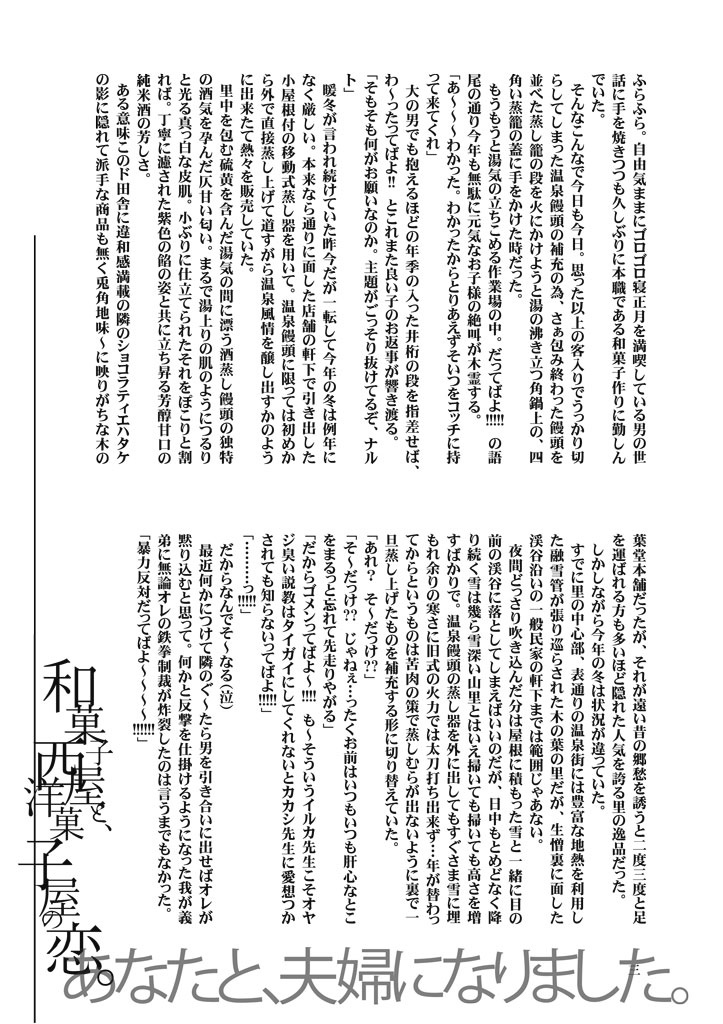 ふらふら。自由気ままにゴロゴロ寝正月を満喫している男の世
話に手を焼きつつも久しぶりに本職である和菓子作りに勤しん
でいた。
そんなこんなで今日も今日。思った以上の客入りでうっかり切
らしてしまった温泉饅頭の補充の為、さぁ包み終わった饅頭を
並べた蒸し籠の段を火にかけようと湯の沸き立つ角鍋上の、四
角い蒸籠の蓋に手をかけた時だった。
もうもうと湯気の立ちこめる作業場の中。だってばよ!!!!!の語
尾の通り今年も無駄に元気なお子様の絶叫が木霊する。
「あ〜〜〜わかった。わかったからとりあえずそいつをコッチに持
って来てくれ」
大の男でも抱えるほどの年季の入った井桁の段を指差せば、
わ〜ったってばよ!! とこれまた良い子のお返事が響き渡る。
「そもそも何がお願いなのか。主題がごっそり抜けてるぞ、ナル
ト」
暖冬が言われ続けていた昨今だが一転して今年の冬は例年に
なく厳しい。本来なら通りに面した店舗の軒下で引き出した
小屋根付の移動式蒸し器を用いて。温泉饅頭に限っては初めか
ら外で直接蒸し上げて道すがら温泉風情を醸し出すかのよう
に出来たて熱々を販売していた。
里中を包む硫黄を含んだ湯気の間に漂う酒蒸し饅頭の独特
の酒気を孕んだ仄甘い匂い。まるで湯上りの肌のようにつるり
と光る真っ白な皮肌。小ぶりに仕立てられたそれをぽこりと割
れば。丁寧に濾された紫色の餡の姿と共に立ち昇る芳醇甘口の
純米酒の芳しさ。
ある意味このド田舎に違和感満載の隣のショコラティエハタケ
の影に隠れて派手な商品も無く兎角地味〜に映りがちな木の
葉堂本舗だったが、それが遠い昔の郷愁を誘うと二度三度と足
を運ばれる方も多いほど隠れた人気を誇る里の逸品だった。
しかしながら今年の冬は状況が違っていた。
すでに里の中心部、表通りの温泉街には豊富な地熱を利用し
た融雪管が張り巡らされた木の葉の里だが、生憎裏に面した
渓谷沿いの一般民家の軒下までは範囲じゃあない。
夜間どっさり吹き込んだ分は屋根に積もった雪と一緒に目の
前の渓谷に落としてしまえばいいのだが、日中もとめどなく降
り続く雪は幾ら雪深い山里とはいえ掃いても掃いても高さを増
すばかりで。温泉饅頭の蒸し器を外に出してもすぐさま雪に埋
もれ余りの寒さに旧式の火力では太刀打ち出来ず…年が替わっ
てからというものは苦肉の策で蒸しむらが出ないように裏で一
旦蒸し上げたものを補充する形に切り替えていた。
「あれ? そ〜だっけ??」
「そ〜だっけ?? じゃねぇ…ったくお前はいつもいつも肝心なとこ
をまるっと忘れて先走りやがる」
「だからゴメンってばよ〜!!!! も〜そういうイルカ先生こそオヤ
ジ臭い説教はタイガイにしてくれないとカカシ先生に愛想つか
されても知らないってばよ!!!!!」
「………っ!!!!!」
だからなんでそ〜なる(泣)
最近何かにつけて隣のぐ〜たら男を引き合いに出せばオレが
黙り込むと思って。何かと反撃を仕掛けるようになった我が義
弟に無論オレの鉄拳制裁が炸裂したのは言うまでもなかった。
「暴力反対だってばよ〜〜〜〜!!!!!!」
和菓子屋と、
西洋菓子屋の恋。
あなたと、夫婦になりました。
三